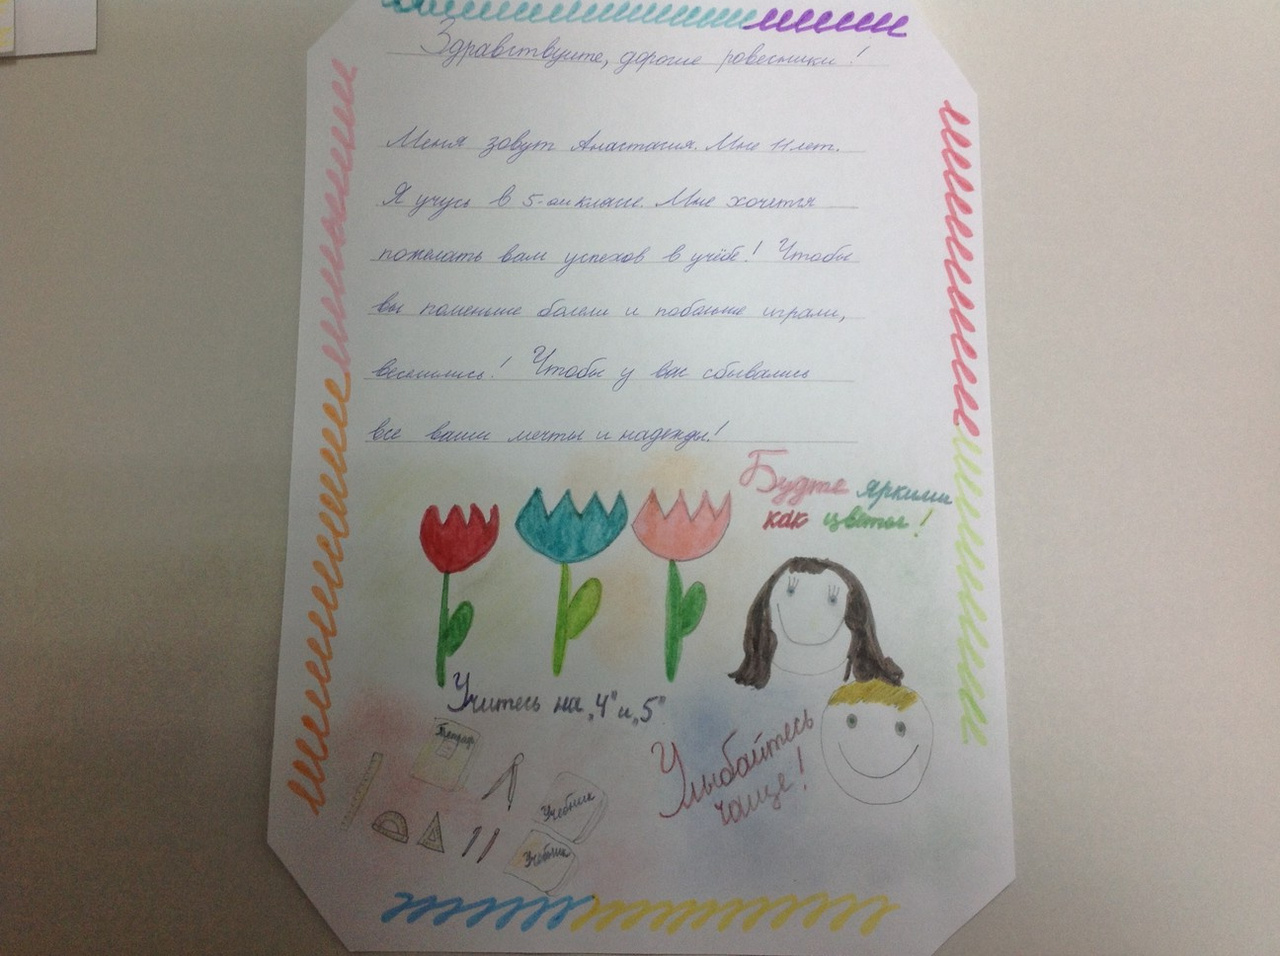 Здравствуйте, дорогие ровесники!
Меня зовут Анастасия. Мне 11 лет.
Я учусь в 5-ом классе. Мне хочется
пожелать вам успехов в учёбе! Чтобы
вы поменьше болели и побольше играли,
веселились! Чтобы у вас сбывались
все ваши мечты и надежды!
Будте яркими
как цветы!
Учитесь на „4" и „5"
Улыбайтесь
чаще!
Тетрадь
Учебник
Учебник